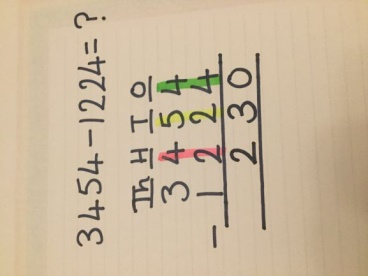 3454-1224= ?
Th H T O
3 4 5 4
- 1 2 2 4
2 3 0